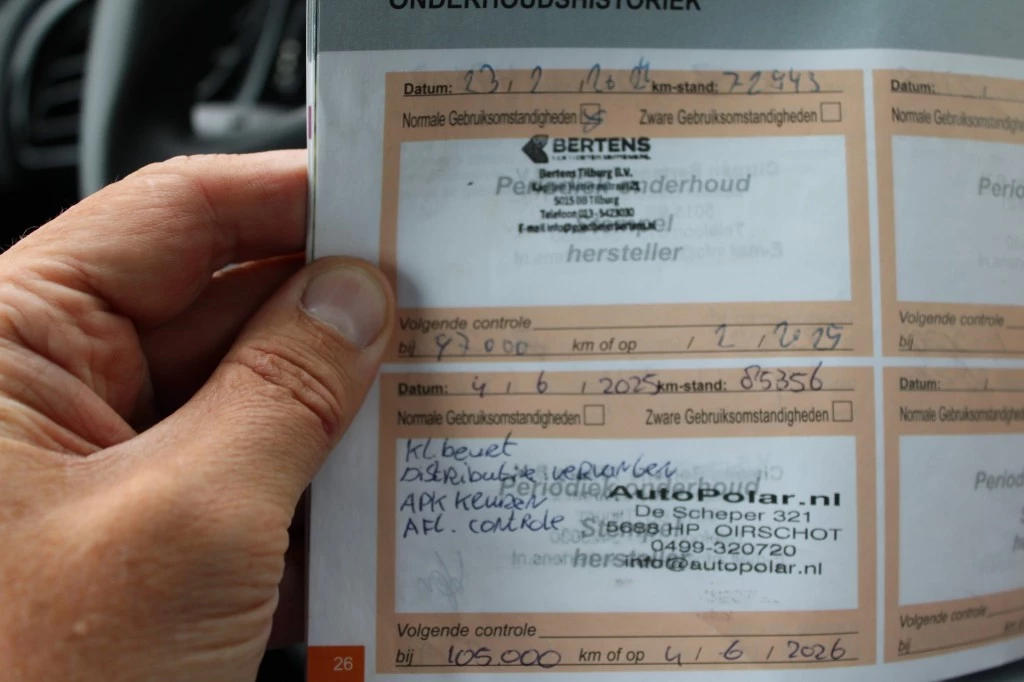 ONDERHOUDSHISTORIEK
Datum: 23, 2 km-stand: 72943
Normale Gebruiksomstandigheden Zware Gebruiksomstandigheden
BERTENS
Bertens Tilburg B.V.
5015 BB Tilburg
Telefoon 013-5423030
Periodiek onderhoud
hersteller
Volgende controle
bij 97000 km of op , 2 , 2025
Datum: 4 , 6 , 2025 km-stand: 85356
Normale Gebruiksomstandigheden Zware Gebruiksomstandigheden
Kl. beurt
Distributie vervangen
APK Keuren
AFL. controle
Periodiek onderhoud
hersteller
AutoPolar.nl
De Scheper 321
5688 HP OIRSCHOT
0499-320720
info@autopolar.nl
Volgende controle
bij 105.000 km of op 4 , 6 , 2026
26
Datum:
Normale Gebruiksomstand
Volgende controle
bij
Datum:
Normale Gebruiksomstand
Volgende controle
bij